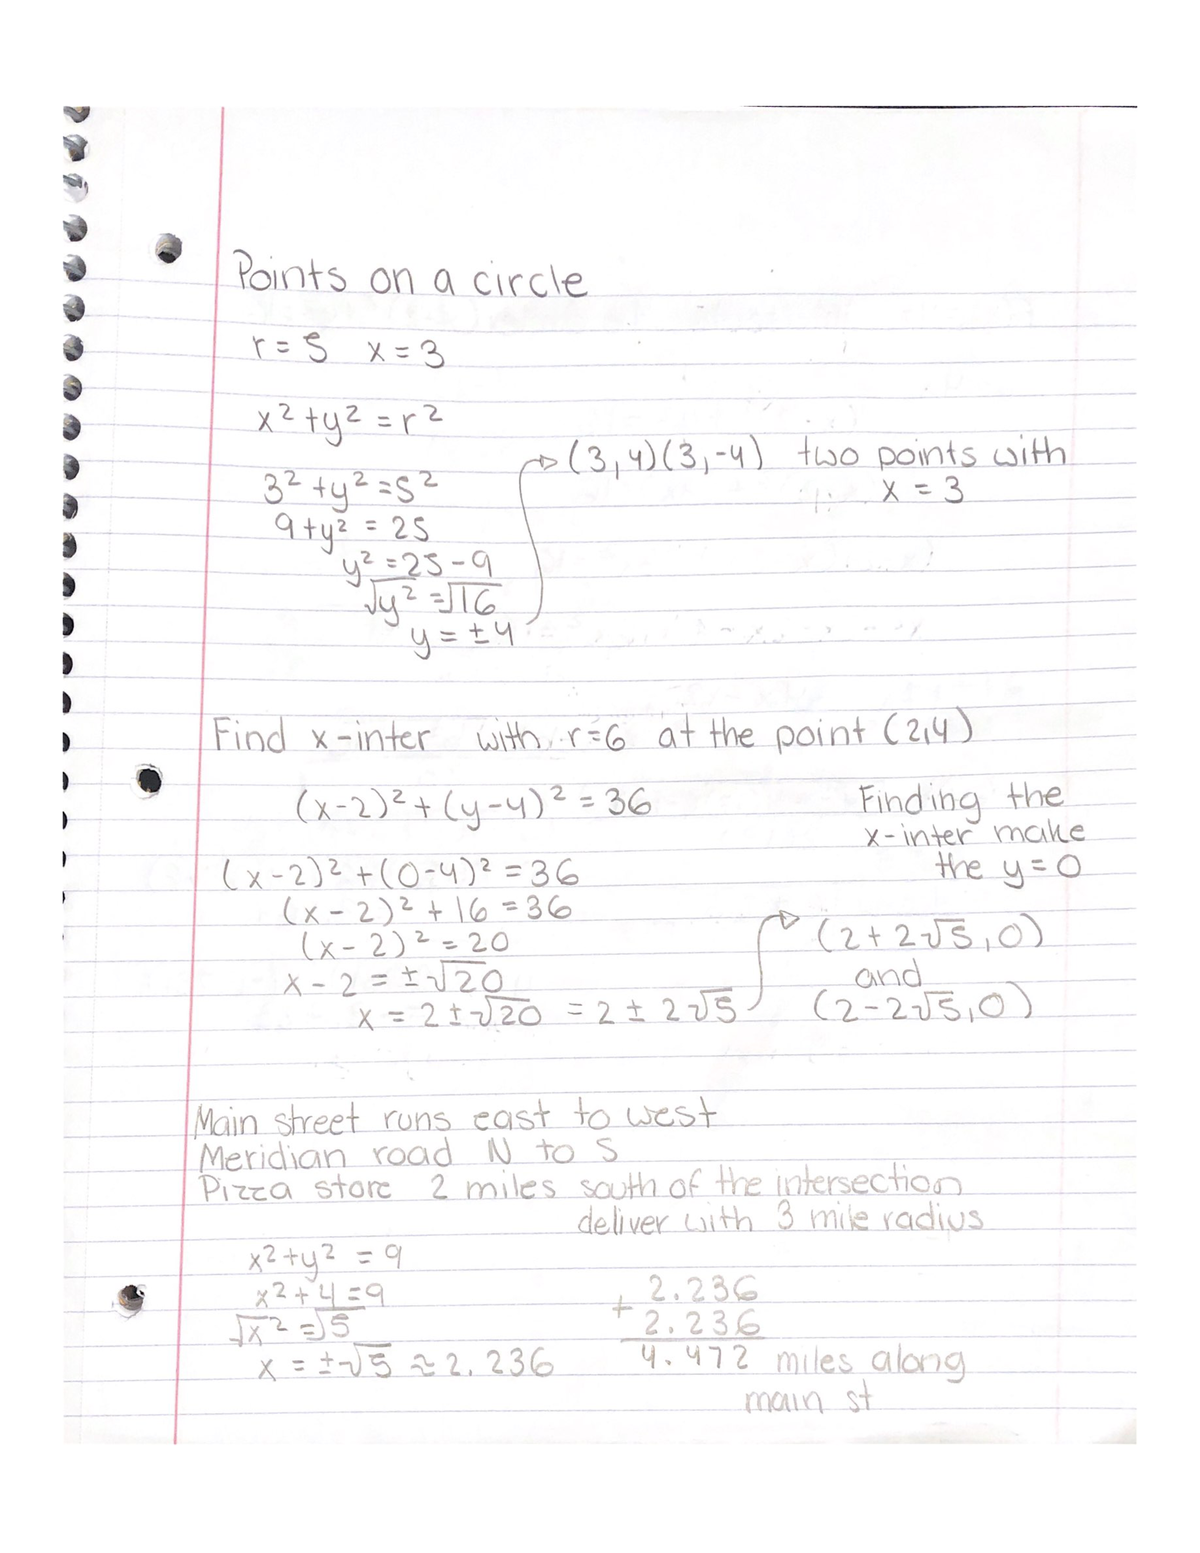 Points on a circle
r = 5 x = 3
x² + y² = r²
3² + y² = 5²
9 + y² = 25
y² = 25 - 9
√y² = √16
y = ± 4
(3,4)(3,-4) two points with
x = 3
Find x-inter with r=6 at the point (2,4)
(x-2)² + (y-4)² = 36
Finding the
x-inter make
the y=0
(x-2)² + (0-4)² = 36
(x-2)² + 16 = 36
(x-2)² = 20
x - 2 = ± √20
x = 2 ± √20 = 2 ± 2√5
(2+2√5,0)
and
(2-2√5,0)
Main street runs east to west
Meridian road N to S
Pizza store 2 miles south of the intersection
deliver with 3 mile radius
x² + y² = 9
x² + 4 = 9
√x² = √5
x = ± √5 ≈ 2.236
2.236
+ 2.236
4.472 miles along
main st